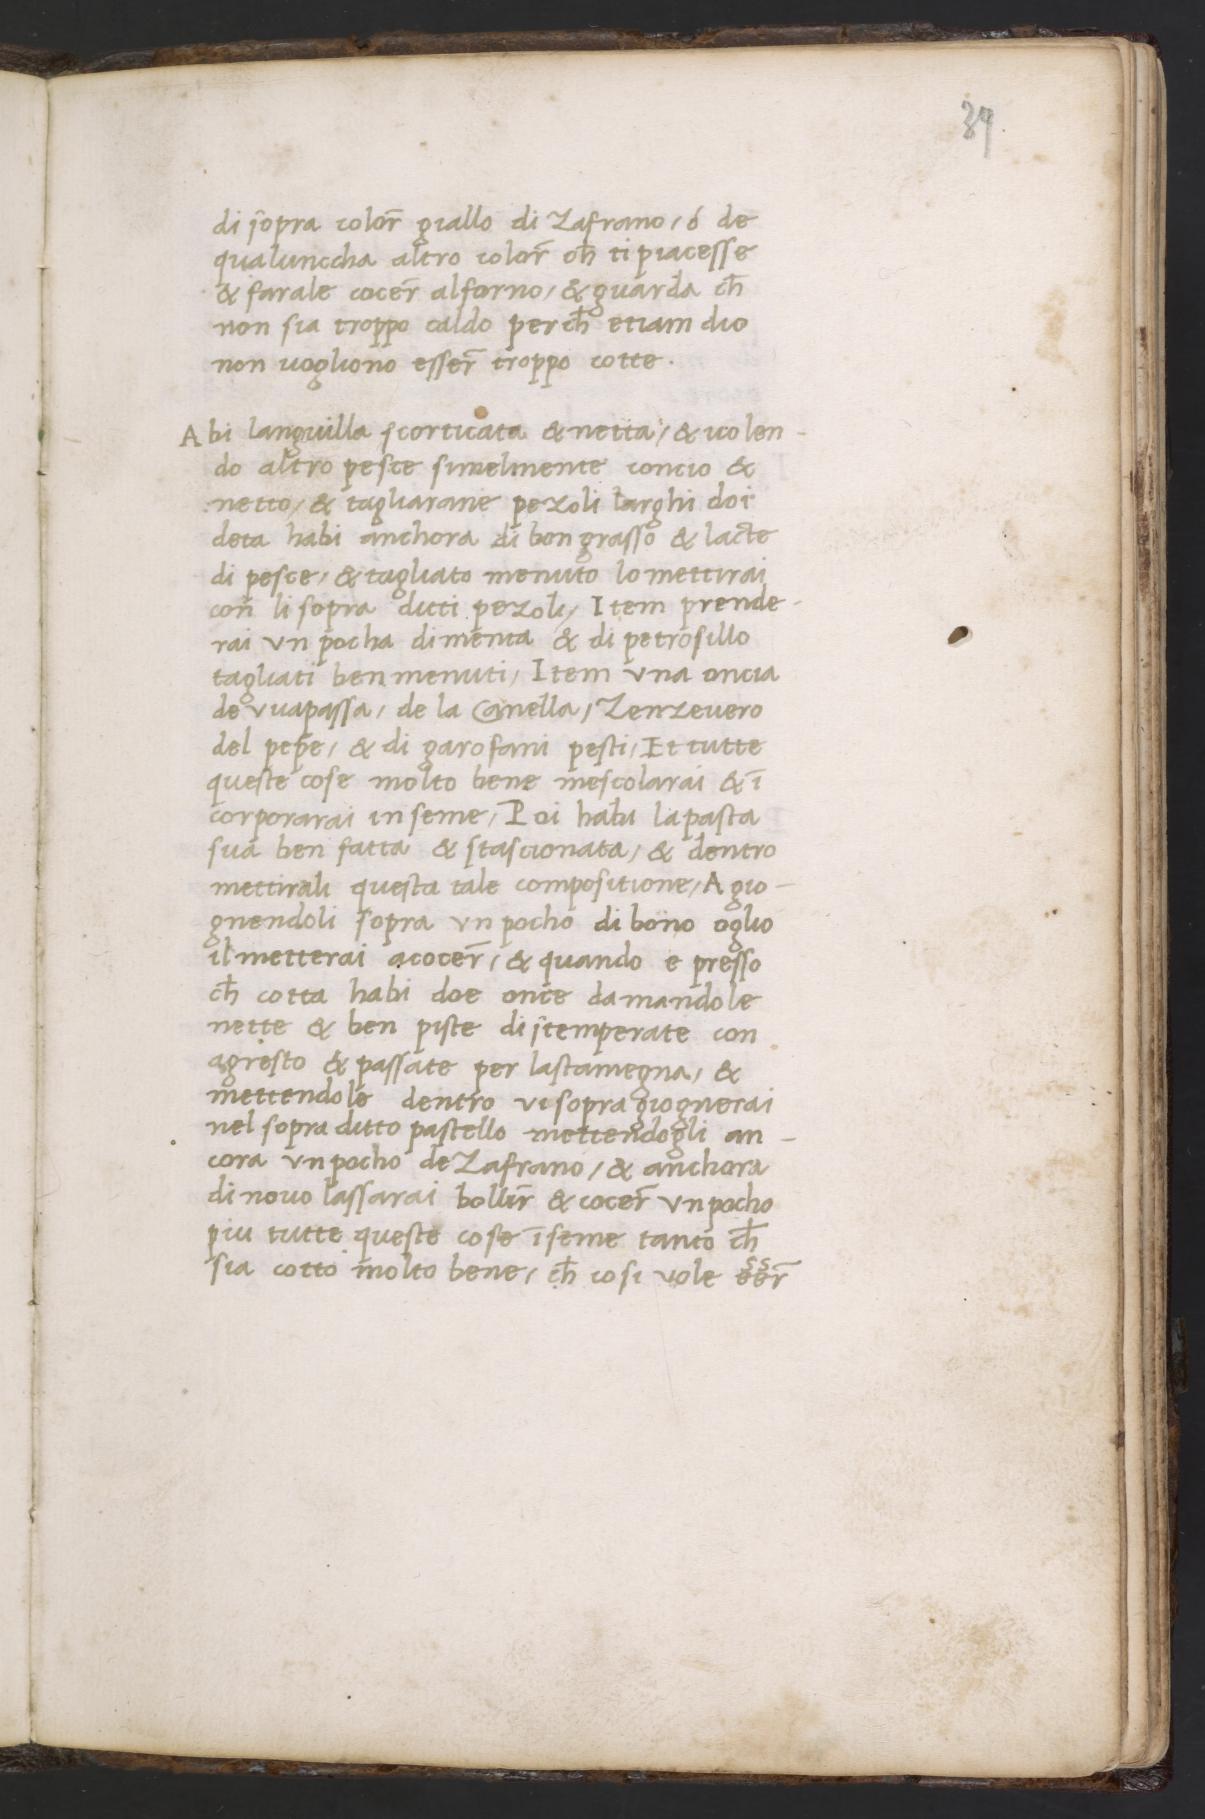 39
di sopra color̄ giallo di Zafrano, ó de
qualunccha altro color̄ ch̄ ti piacesse
& farale cocer̄ al forno, & guarda ch̄
non sia troppo caldo perch̄ etiam dio
non uogliono esser̄ troppo cotte.
Abi languilla scorticata & netta, & uolen-
do altro pesce simelmente concio &
netto, & tagliarane pezoli larghi doi
deta habi anchora di bon grasso & lacte
di pesce, & tagliato menuto lo mettirai
con li sopra ditti pezoli, Item prende-
rai vn pocha di menta & di petrosillo
tagliati ben menuti, Item vna oncia
de vuapassa, de la Canella, Zenzeuero
del pepe, & di garofani pesti, Et tutte
queste cose molto bene mescolarai & ī
corporarai in seme, Poi habi la pasta
sua ben fatta & stascionata, & dentro
mettirali questa tale compositione, Agio-
gnendoli sopra vn pocho di bono oglio
il metterai acocer̄, & quando e presso
ch̄ cotta habi doe once da mandole
nette & ben piste distemperate con
agresto & passate per la stamegna, &
mettendole dentro vi sopra giognerai
nel sopra ditto pastello mettendogli an-
cora vn pocho de Zafrano, & anchora
di nouo lassarai bollir̄ & cocer̄ vn pocho
piu tutte queste cose īseme tanto ch̄
sia cotto molto bene, ch̄ cosi vole eēsser̄